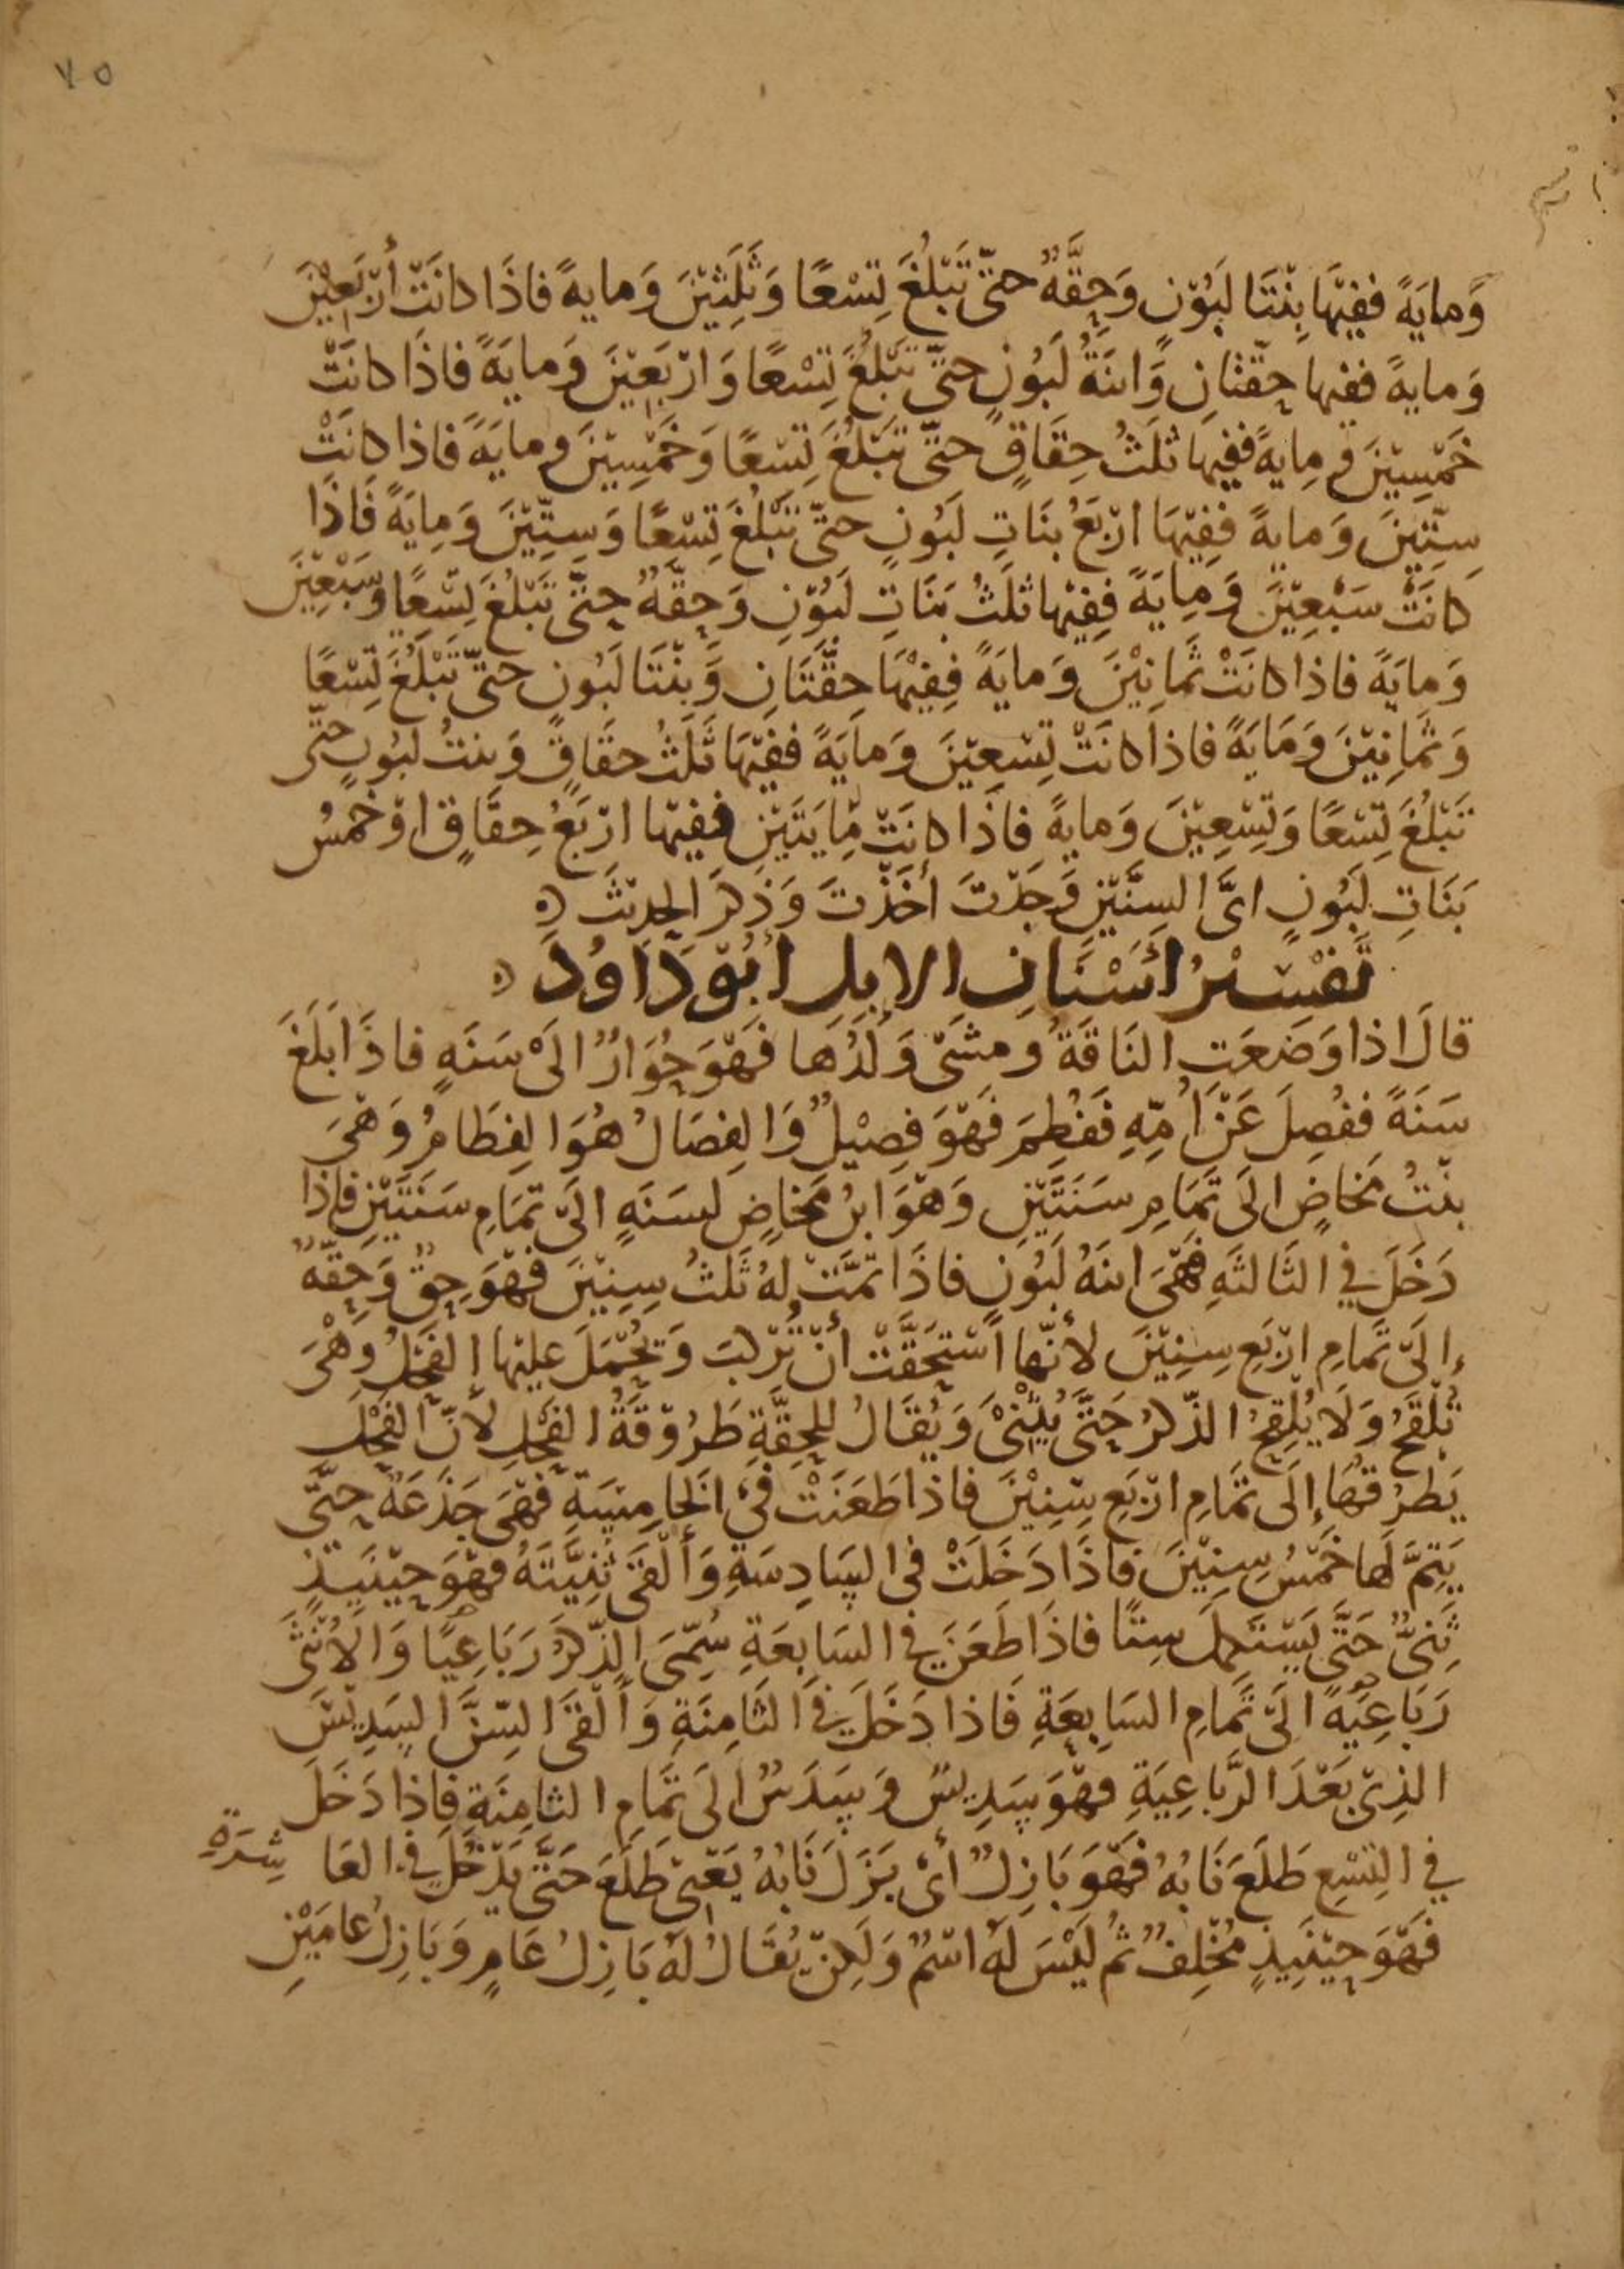 ٧٥
وَمايَةً ففِيْهَا بِنْتَا لَبُوْنٍ وَحِقَّةٌ حتّى تَبْلُغَ تِسْعًا وَثَلَثِيْنَ وَمايةً فَاذَا كانَتْ أرْبَعِيْنَ
وَمايةً ففيها حِقّتانِ وَابنَةُ لَبُوْنٍ حتّى تَبْلُغَ تِسْعًا وَارْبَعِيْنَ وَمايَةً فاذَا كانَتْ
خَمْسِيْنَ وَمِايةً ففيهَا ثلَثُ حِقَاقٍ حتّى تَبْلُغَ تِسْعًا وَخَمْسِيْنَ ومايَةً فاذا كانَتْ
سِتِّيْنَ وَمايةً فَفِيْهَا ارْبَعُ بنَاتِ لَبُونٍ حتّى تَبْلُغَ تِسْعًا وَسِتِّيْنَ وَمِايَةً فَاذَا
كانَتْ سَبْعِيْنَ وَمِايَةً فَفِيْها ثلَثُ بَنَاتِ لَبُوْنٍ وَحِقَّةٌ حتّى تَبْلُغَ تِسْعًا وَسَبْعِيْنَ
وَمايَةً فاذا كانَتْ ثَمانِيْنَ وَمايَةً فَفِيْهَا حِقَّتَانِ وَبِنْتَا لَبُونٍ حتّى تَبْلُغَ تِسْعًا
وَثَمانِيْنَ وَمَايَةً فاذا كانَتْ تِسْعِيْنَ وَمايَةً ففِيْهَا ثَلَثُ حقَاقٍ وَبنتُ لبُونٍ حتّى
تَبْلُغَ تِسْعًا وَتِسْعِيْنَ وَمايةً فاذَا كانَتْ مِايَتَيْنِ ففِيْها ارْبَعُ حِقَاقٍ اوْ خَمْسُ
بَنَاتِ لَبُونٍ ايَّ السِنَّيْنِ وَجَدْتَ أخَذْتَ وَذكَرَ الحدِيْثَ
تَفْسِيْرُ أسْنَانِ الابِلِ ابُوْ دَاوُدَ
قالَ اذا وَضَعَتِ النَاقَةُ ومشَى وَلَدُهَا فَهْوَ حُوَارٌ الَىْ سَنَةٍ فاذَا بَلَغَ
سَنَةً ففُصِلَ عَنْ أُمّهِ فَفُطِمَ فَهْوَ فصِيْلٌ وَالفِصَالُ هُوَ الفِطَامُ وَهْيَ
بنْتُ مَخاضٍ الَى تَمَامِ سَنَتَيْنِ وَهْوَ ابنُ مَخاضٍ لسَنَةٍ الَىْ تمَامِ سَنَتَيْنِ فاذا
دَخَلَ في الثَالثَةِ فَهْىَ ابنَةُ لَبُونٍ فاذَا تمَّتْ لهُ ثَلثُ سِنِيْنَ فهْوَ حِقٌّ وَحِقَّةٌ
إلَىْ تَمامِ ارْبَعِ سِنِيْنَ لأنّها اسْتَحَقَّتْ أنْ تُرْكَبَ وَيُحْمَلَ عليْها الفَحْلُ وَهْىَ
تُلْقَحُ وَلَا يُلْقِحُ الذّكَرُ حَتّى يُثْنِىْ وَيُقَالُ للحِقَّةِ طَرُوْقَةُ الفَحْلِ لأنّ الفَحْلَ
يَطرُقُهَا إلَى تَمَامِ ارْبَعِ سِنِيْنَ فاذا طَعَنَتْ في الخامِسَةِ فهْىَ جَذَعَةٌ حتّى
يَتِمَّ لَها خَمْسُ سِنِيْنَ فاذَا دَخَلَتْ في السَادِسَةِ وَألْقَى ثَنِيَّتَهُ فهْوَ حيْنَيِذٍ
ثَنِىٌّ حَتَّى يَسْتَكمِلَ سِتًّا فاذَا طَعَنَ في السَابِعَةِ سُمّىَ الذّكَرُ رَبَاعِيًا وَالأُنْثَى
رَبَاعِيَةً الَىْ تَمامِ السَابِعَةِ فَاذا دَخَلَ في الثَامِنَةِ وَألْقَى السّنَّ السَدِيْسَ
الذِىْ بَعْدَ الرّبَاعِيَةِ فهْوَ سَدِيْسٌ وَسَدَسٌ الَى تَمَامِ الثامِنَةِ فاذا دَخَلَ
في التِسْعِ طَلَعَ نَابُهُ فَهْوَ بَازِلٌ أىْ بَزَلَ نَابُهُ يَعْنِىْ طَلَعَ حَتَّى يَدْخُلَ في العَا شِرَةِ
فَهْوَ حِيْنَيِذٍ مُخْلِفٌ ثمُ لَيْسَ لَهُ اسْمٌ وَلَكِنْ يُقَالُ لَهُ بَازِلُ عَامٍ وَبَازِلُ عامَيْنِ